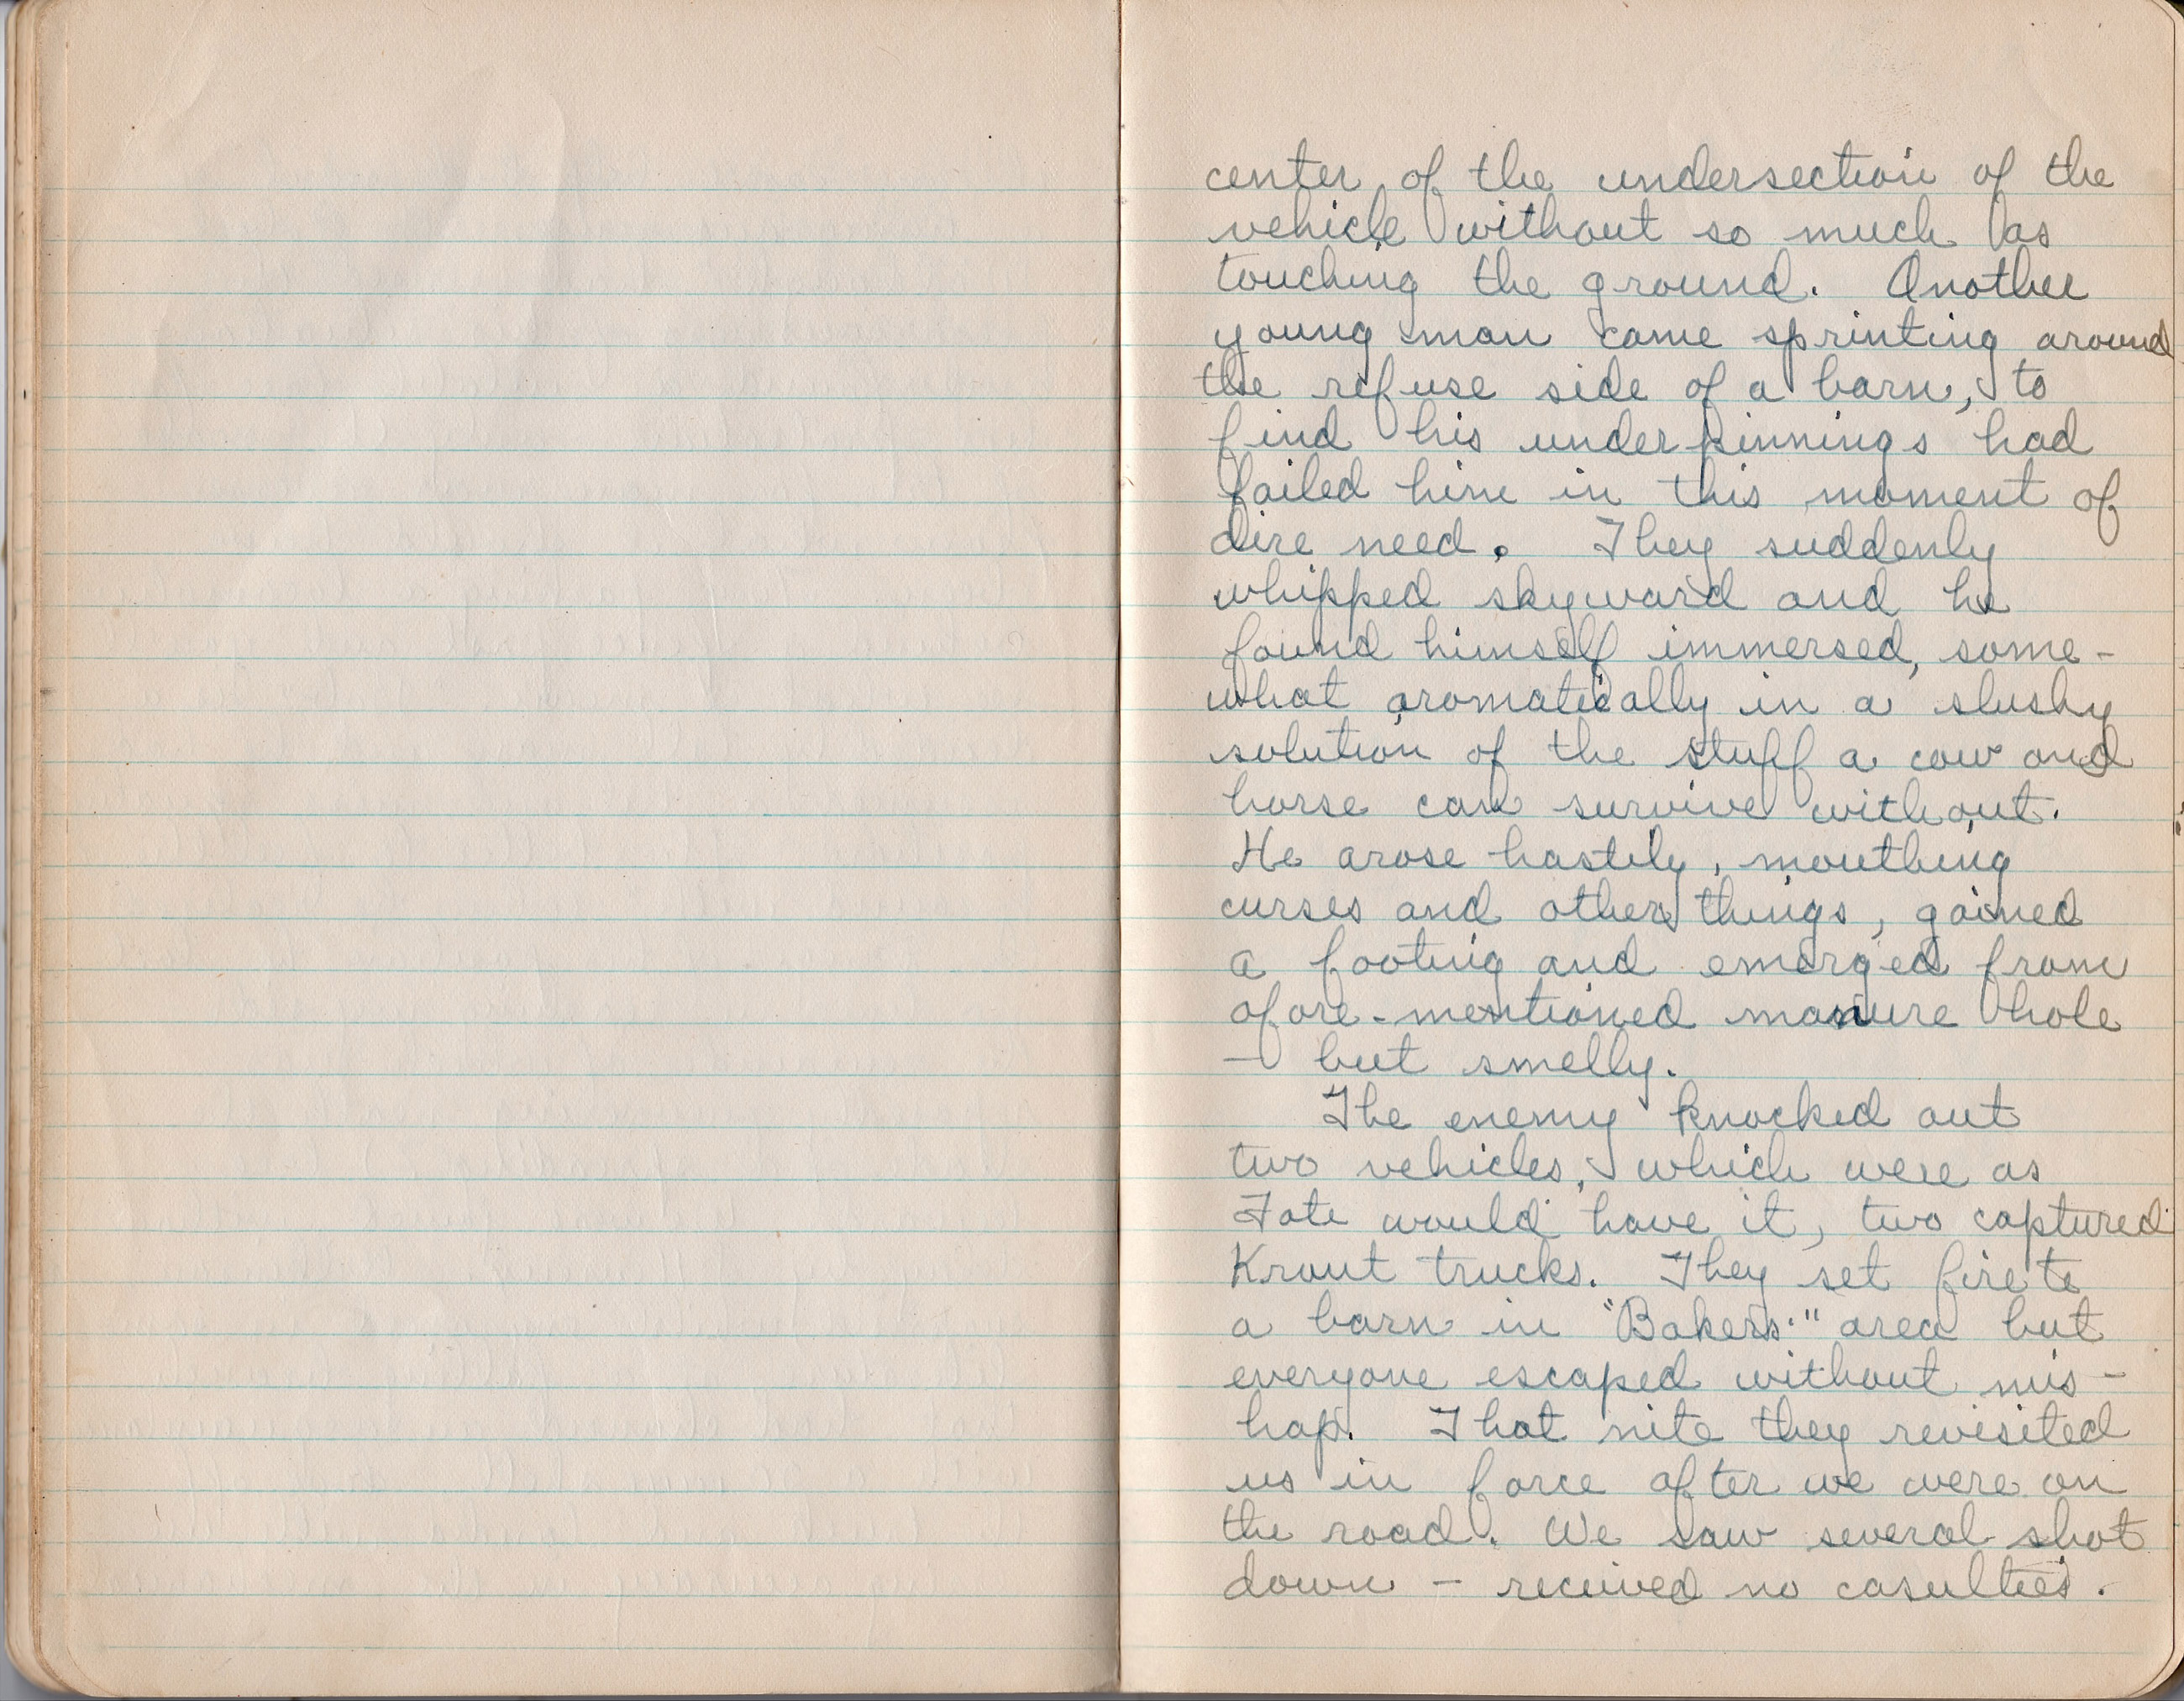 center of the undersection of the
vehicle without so much as
touching the ground. Another
young man came sprinting around
the refuse side of a barn, to
find his underpinnings had
failed him in this moment of
dire need. They suddenly
whipped skyward and he
found himself immersed, some-
what aromatically in a slushy
solution of the stuff a cow and
horse can survive without.
He arose hastily, mouthing
curses and other things, gained
a footing and emerged from
afore-mentioned manure hole
— but smelly.
The enemy knocked out
two vehicles, which were as
Fate would have it, two captured
Kraut trucks. They set fire to
a barn in "Bakers'" area but
everyone escaped without mis-
hap. That nite they revisited
us in force after we were on
the road. We saw several shot
down — received no casulties.